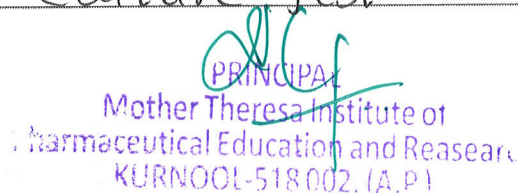 PRINCIPAL
Mother Theresa Institute of
harmaceutical Education and Reasearc
KURNOOL-518 002. (A.P.)